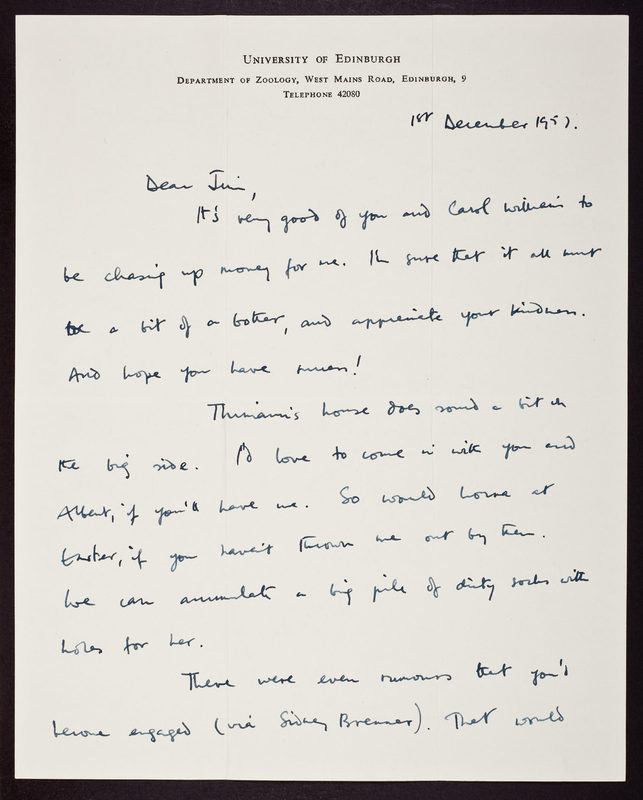 University of Edinburgh
Department of Zoology, West Mains Road, Edinburgh, 9
Telephone 42080
1st December 1957.
Dear Jim,
It's very good of you and Carol Williams to
be chasing up money for me. I'm sure that it all must
be a bit of a bother, and appreciate your kindness.
And hope you have success!
Thimann's house does sound a bit on
the big side. I'd love to come in with you and
Albert, if you'll have me. So would at
Easter, if you haven't thrown me out by then.
We can accumulate a big pile of dirty socks with
holes for her.
There were even rumours that you'd
become engaged (via Sidney Brenner). That would